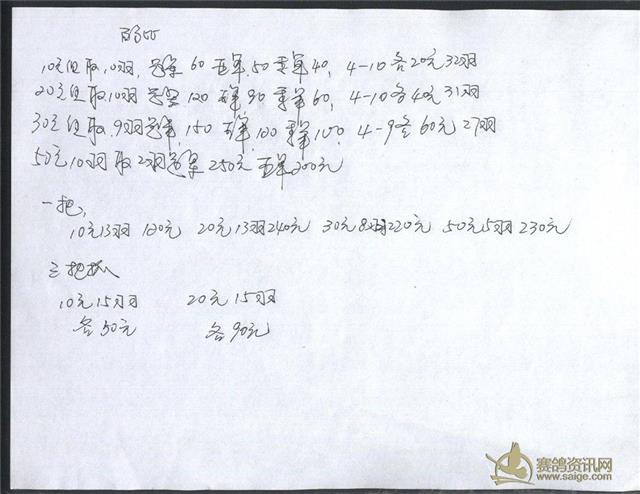 10元组取10羽, 冠军60 亚军50 季军40, 4-10各20元32羽
20元组取10羽 冠军120 亚军90 季军60, 4-10各40元31羽
30元组取9羽冠军150 亚军100 季军100, 4-9各60元27羽
50元10羽取2羽冠军250元亚军200元
一把,
10元13羽 120元 20元13羽240元 30元8羽220元 50元5羽230元
三把抓
10元15羽 20元15羽
各50元 各90元
赛鸽资讯网
www.saige.com